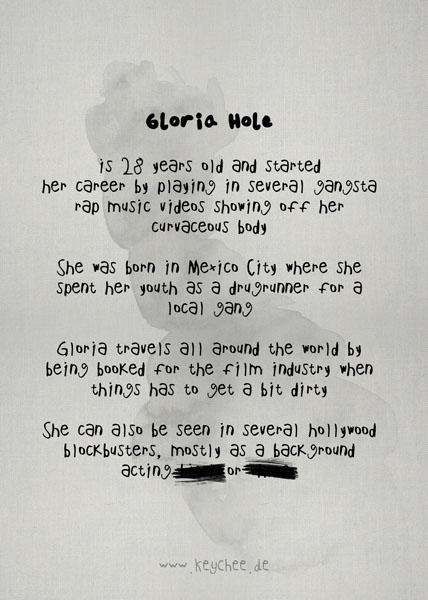 Gloria Hole
is 28 years old and started
her career by playing in several gangsta
rap music videos showing off her
curvaceous body
She was born in Mexico City where she
spent her youth as a drugrunner for a
local gang
Gloria travels all around the world by
being booked for the film industry when
things has to get a bit dirty
She can also be seen in several hollywood
blockbusters, mostly as a background
acting or
www.keychee.de